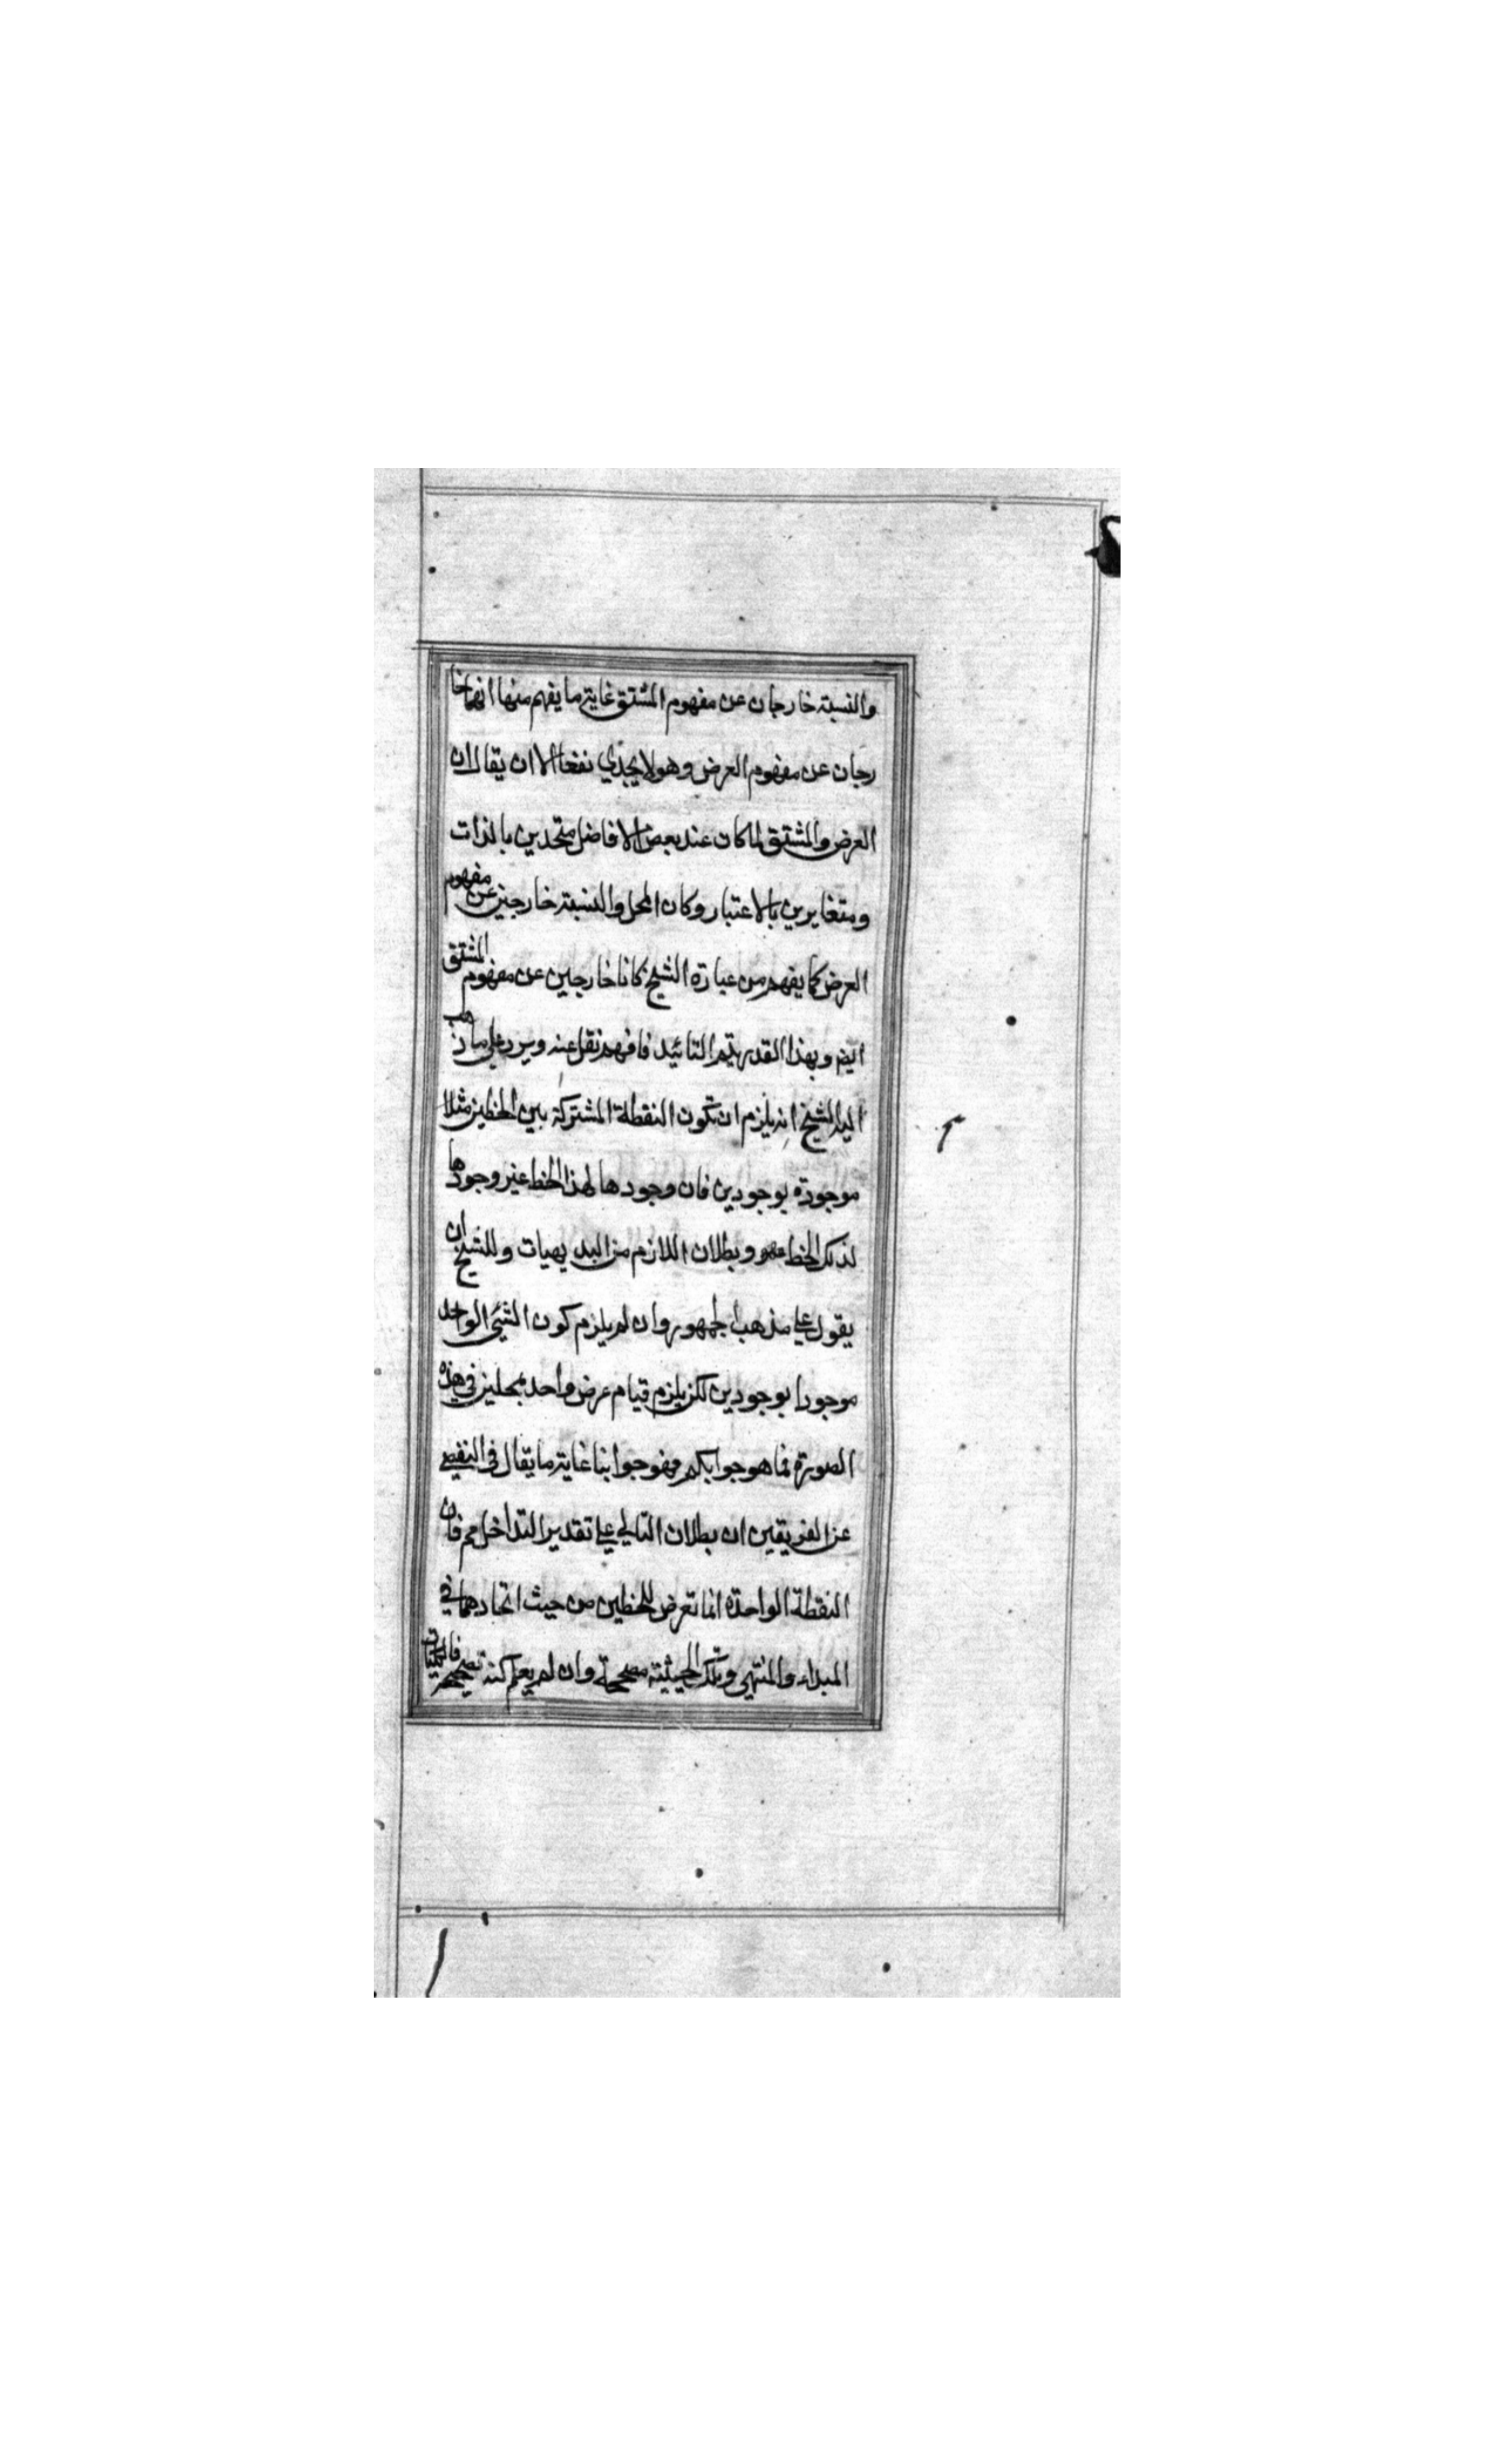 والنسبة خارجان عن مفهوم المشتق غاية ما يفهم منها انهما خا
رجان عن مفهوم العرض وهو لا يجدي نفعا الا ان يقال ان
العرض والمشتق لما كان عند بعض الافاضل متحدين بالذات
ومتغايرين بالاعتبار وكان المحل والنسبة خارجين عن مفهوم
العرض كما يفهم من عبارة الشيخ كانا خارجين عن مفهوم المشتق
ايضا وبهذا القدر يتم التائيد فافهم نقل عنه ويرد على ما ذهب
اليه الشيخ انه يلزم ان تكون النقطة المشتركة بين الخطين مثلا
موجودة بوجودين فان وجودها لهذا الخط غير وجودها
لذلك الخط وبطلان اللازم من البديهيات وللشيخ ان
يقول على مذهب الجمهور وان لم يلزم كون الشئ الواحد
موجودا بوجودين لكن يلزم قيام عرض واحد بمحلين في هذه
الصورة فما هو جوابكم فهو جوابنا غاية ما يقال في التفصي
عن الفريقين ان بطلان التالي على تقدير التداخل مم فان
النقطة الواحدة انما تعرض للخطين من حيث اتحادهما في
المبداء والمنتهى وتلك الحيثية مصححة وان لم يعلم كنه